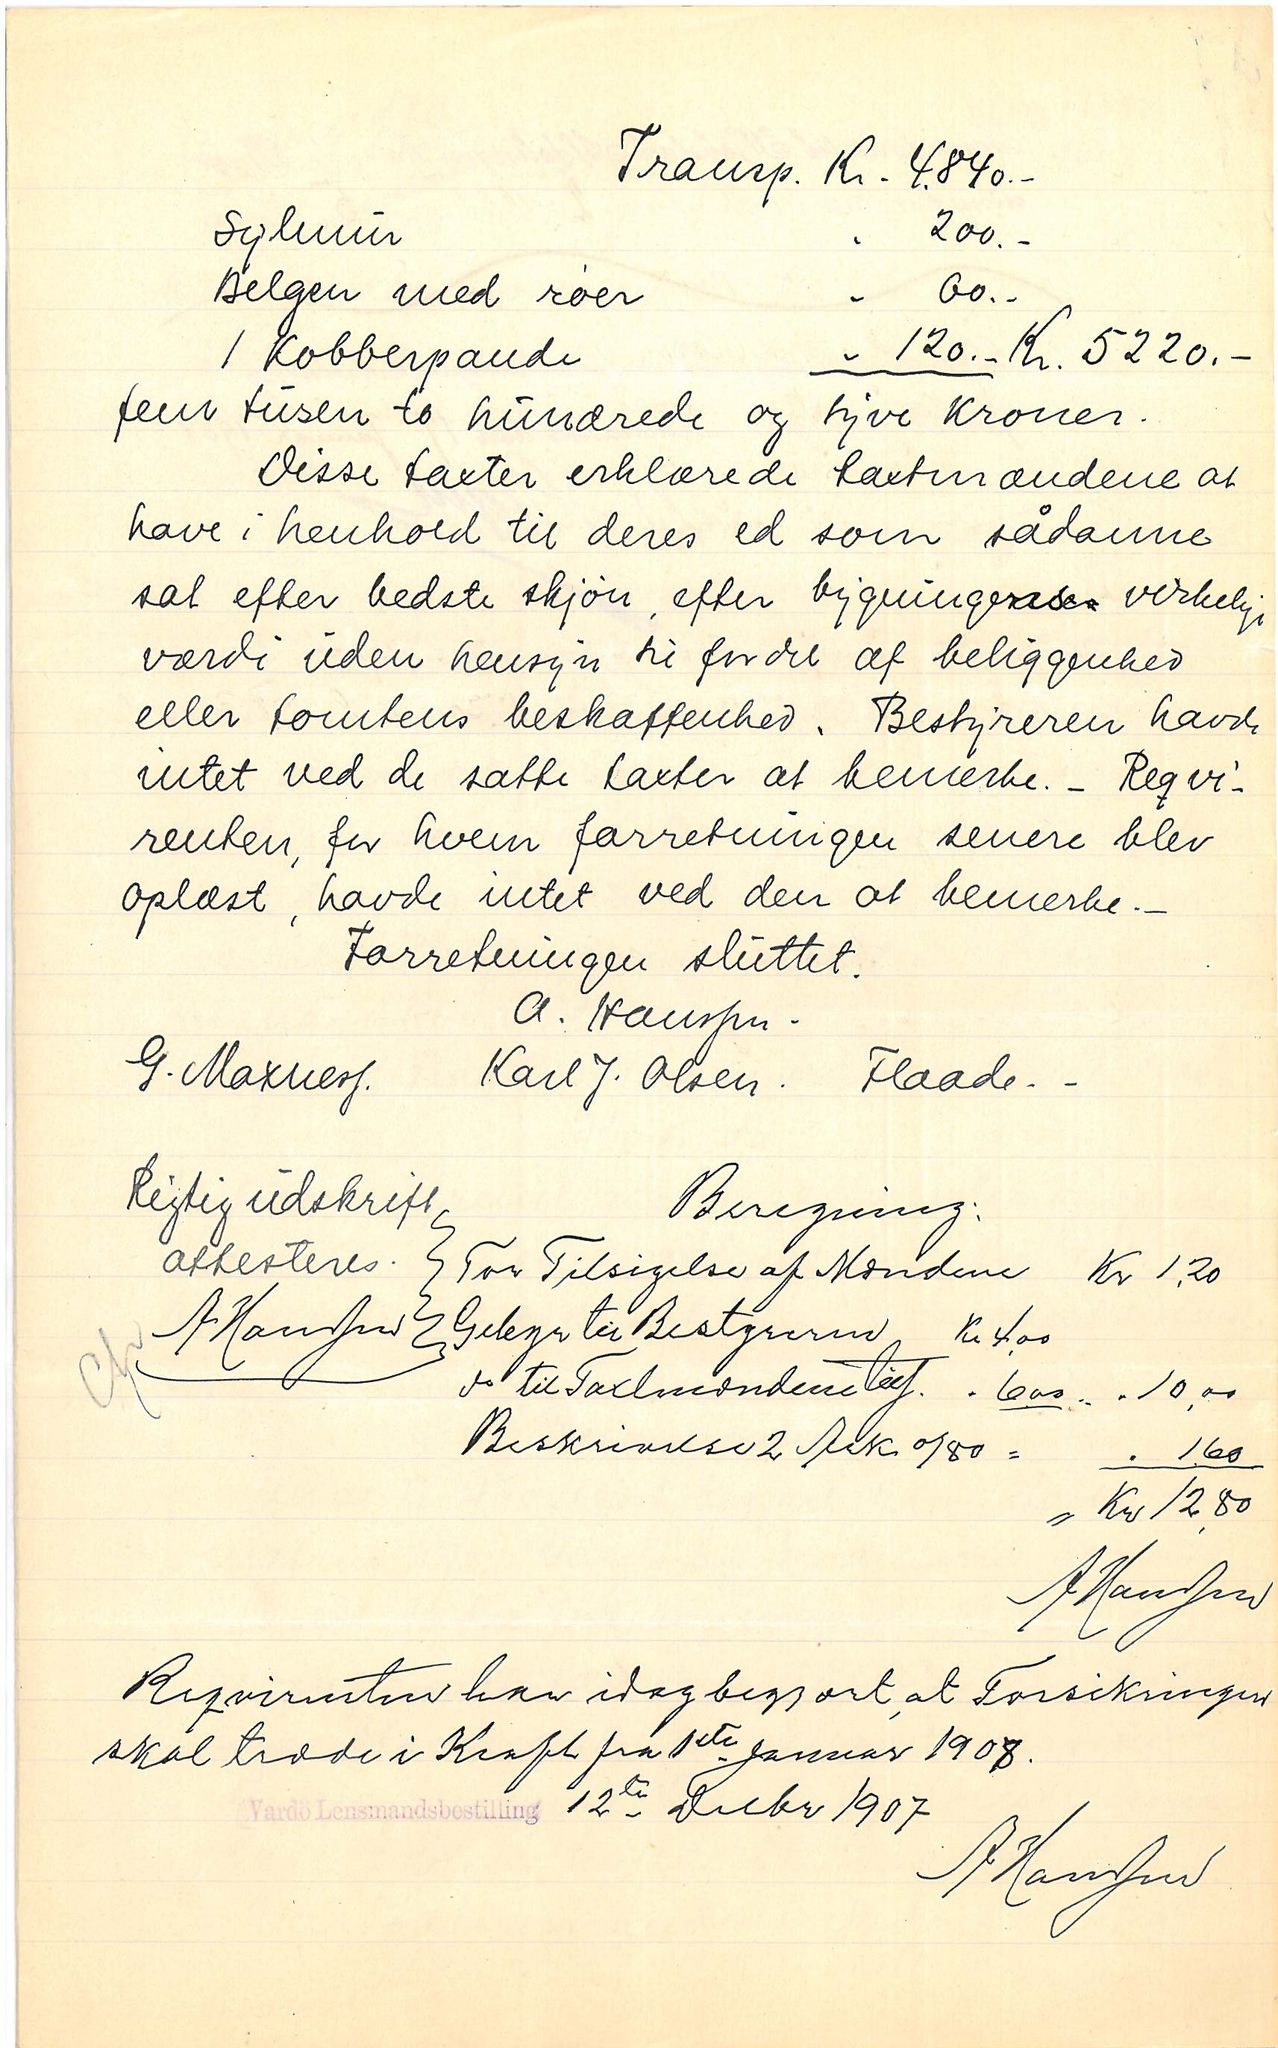 Transp. Kr. 4.840.-
Sylmur " 200.-
Belgen med røer " 60.-
1 Kobberpande " 120.- Kr. 5220.-
fem tusen to hundrede og tyve Kroner.
Disse taxter erklærede taxtmændene at
have i henhold til deres ed som sådanne
sat efter bedste skjøn, efter bygningens virkelige
værdi uden hensyn til fordel af beliggenhed
eller tomtens beskaffenhed. Bestyreren havde
intet ved de satte taxter at bemerke. - Reqvi-
renten, for hvem forretningen senere blev
oplæst, havde intet ved den at bemerke. -
Forretningen sluttet.
A. Hanssen.
G. Maxness. Karl J. Olsen. Flaade. -
Rigtig udskrift
attesteres.
A Hanssen
Beregning:
For Tilsigelse af Mændene Kr 1,20
Gebyr til Bestyreren Kr 4,00
do til Taxtmændene " 6.00 " 10,00
Beskrivelse 2 Ark o/80 = " 1.60
= Kr 12,80
A Hanssen
Reqvirenten har idag begjært, at Forsikringen
skal træde i Kraft fra 1ste Januar 1908.
Vardö Lensmandsbestilling 12te Decbr 1907
A Hanssen